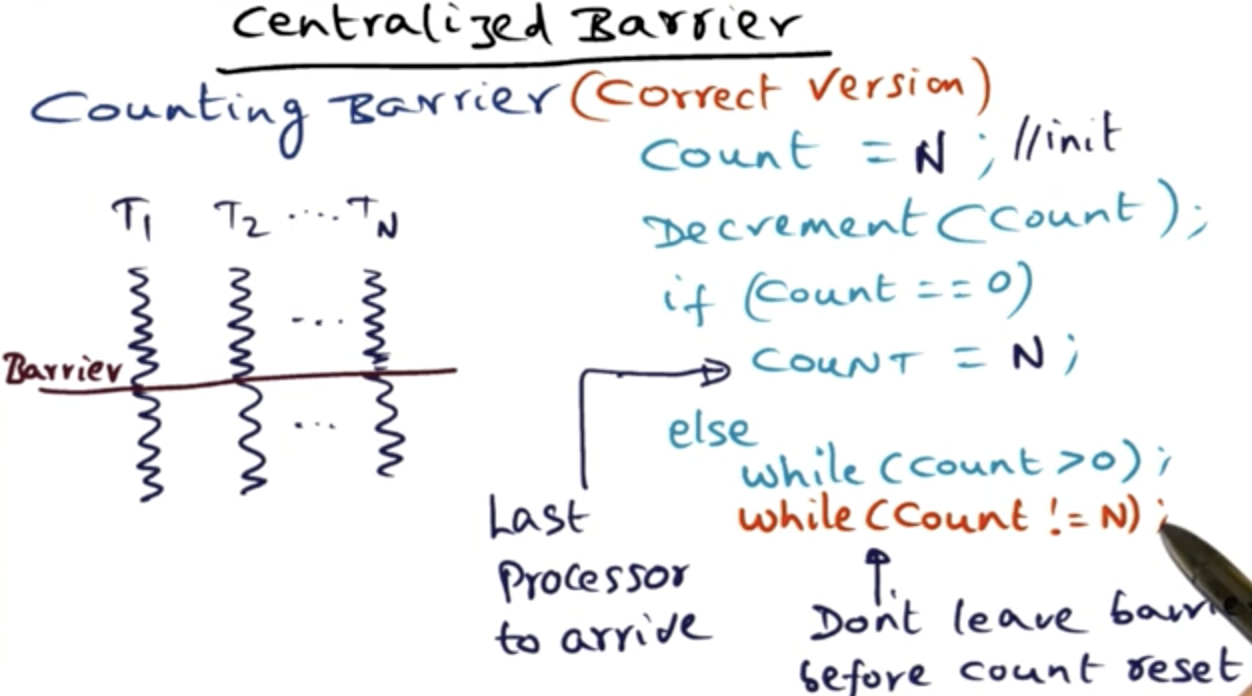 Centralized Barrier
Counting Barrier (Correct Version)
Count = N ; //init
Decrement (Count);
if (Count == 0)
COUNT = N ;
else
while (Count > 0) ;
while (Count != N) ;
T1 T2 .... TN
...
Barrier
...
Last
Processor
to arrive
Dont leave
before count reset